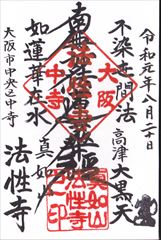 令和元年八月二十日
不染世間法
高津大黒天
大阪
南無妙法蓮華経
中寺
如蓮華在水
真如山
大阪市中央区中寺
法性寺
真如山
法性寺